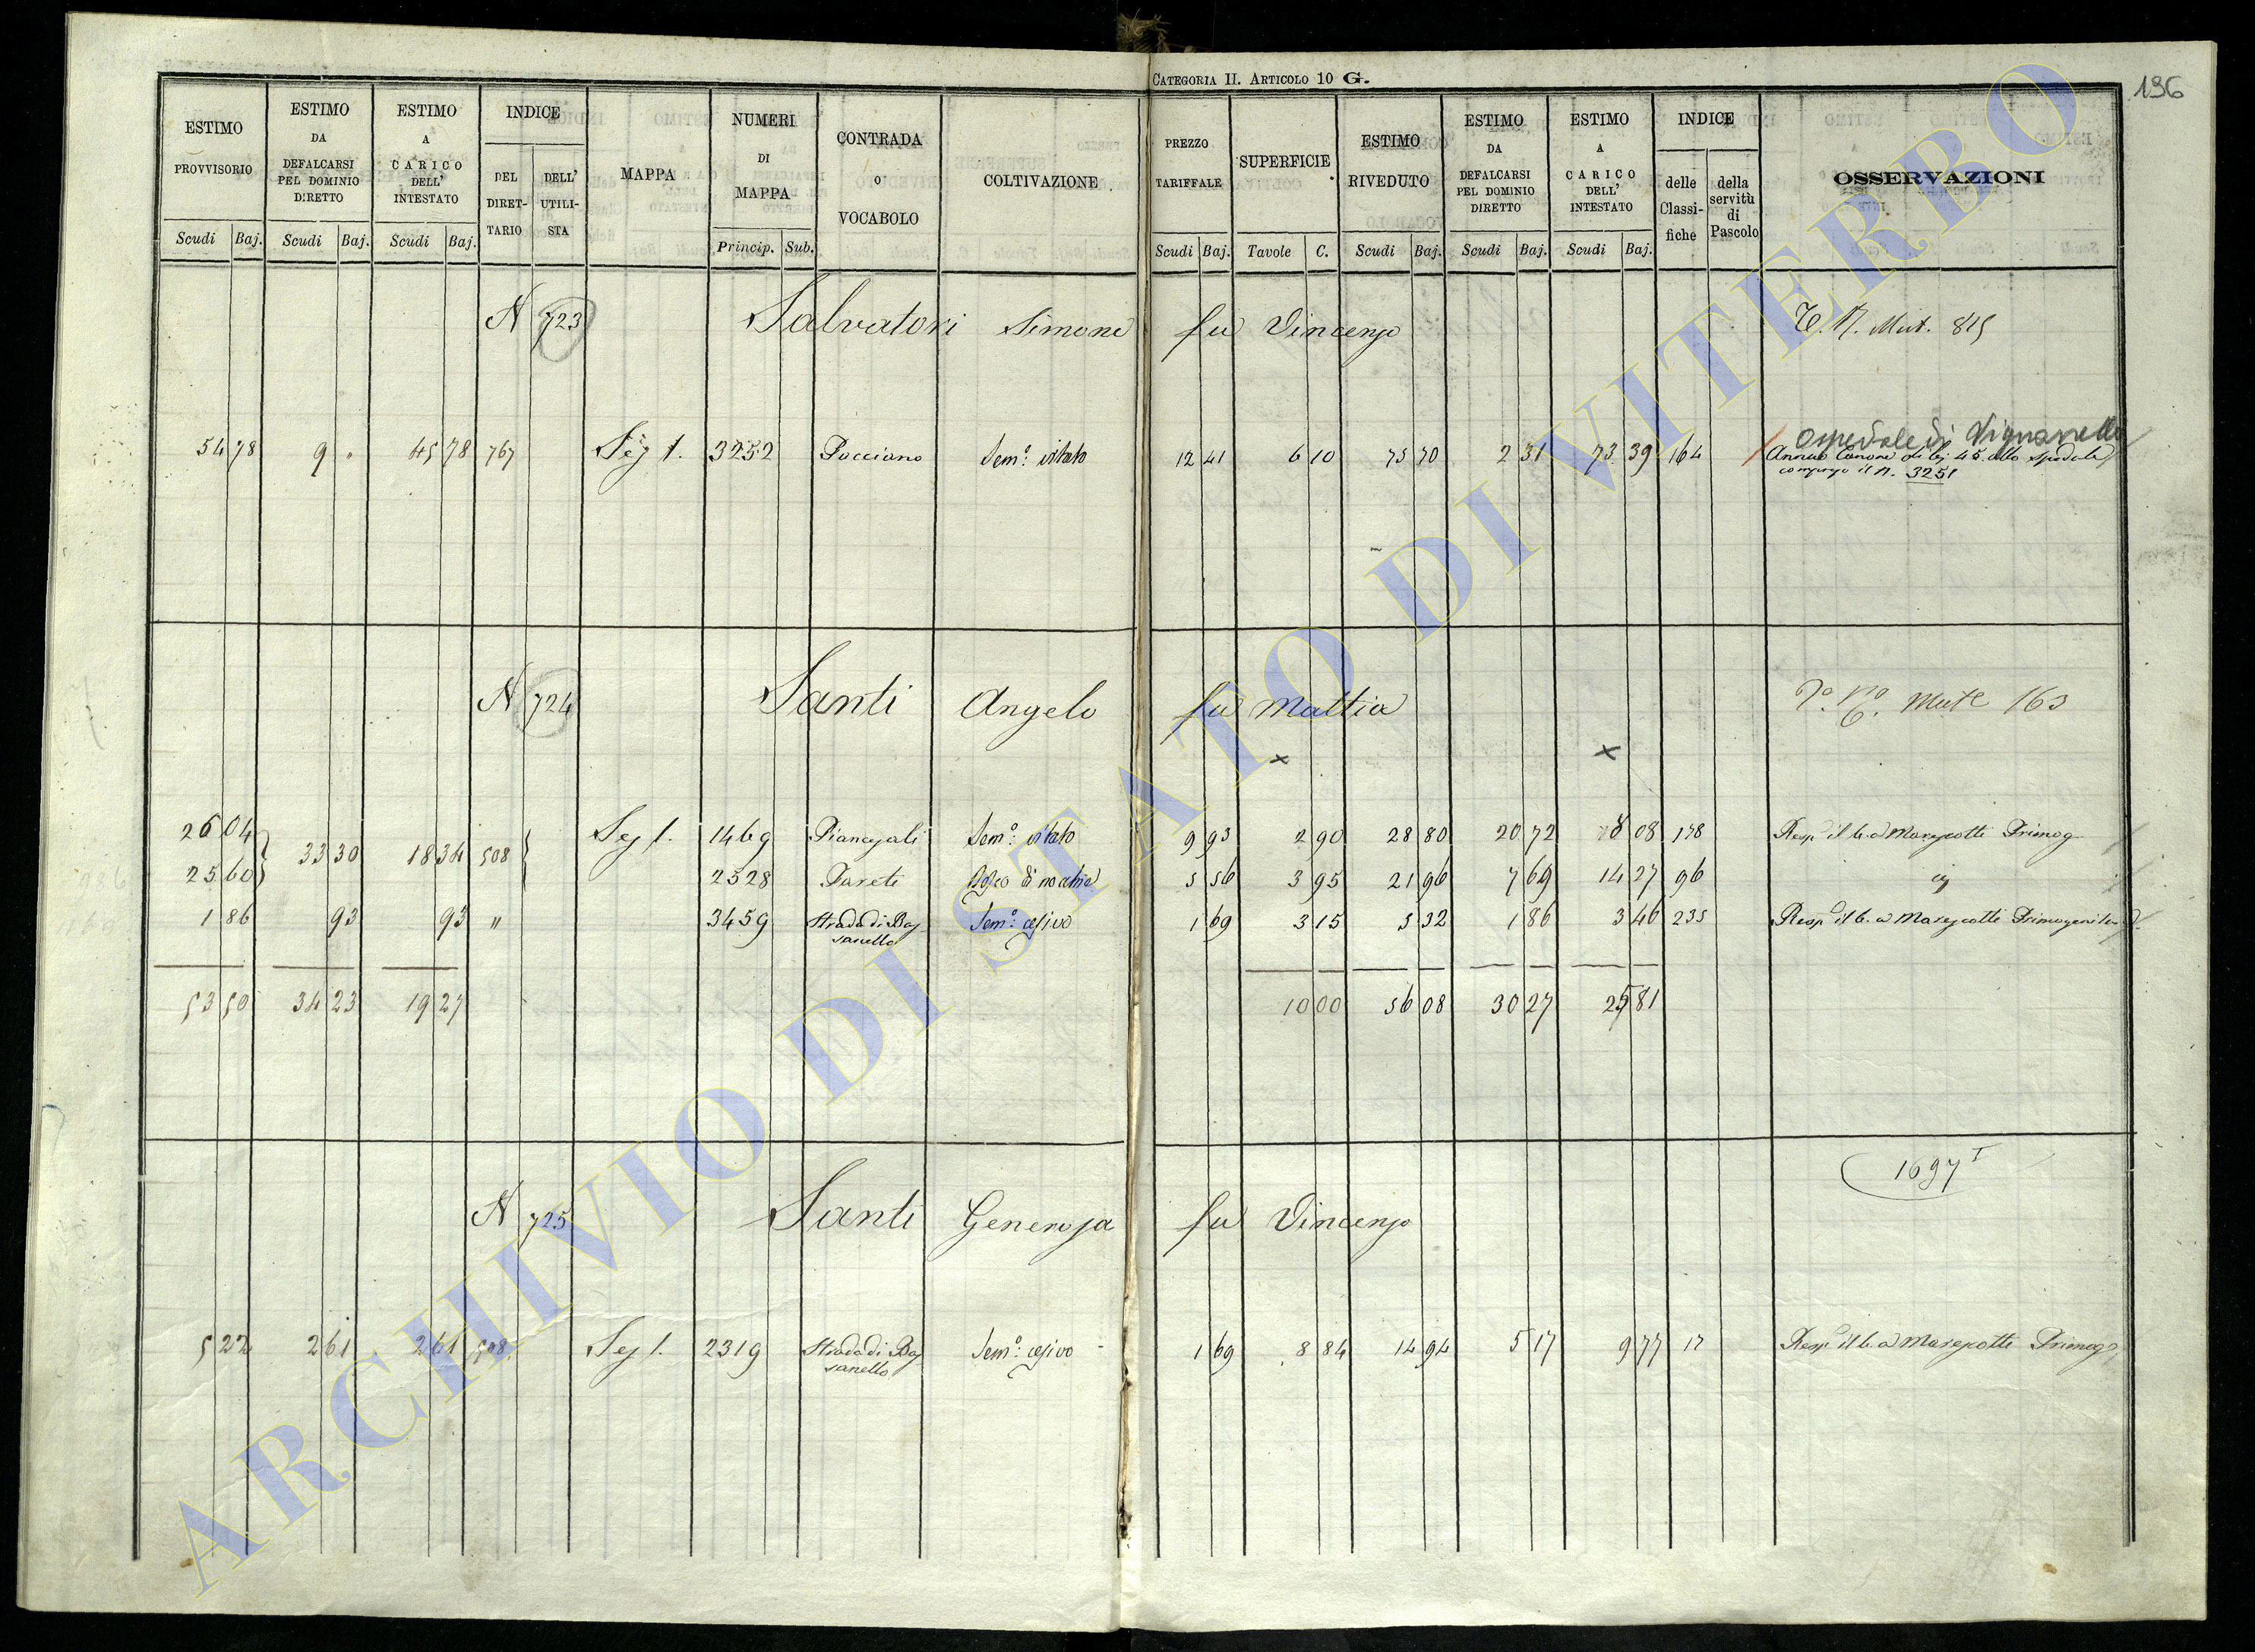 CATEGORIA II. ARTICOLO 10 G.
196
ESTIMO PROVVISORIO
ESTIMO DA DEFALCARSI PEL DOMINIO DIRETTO
ESTIMO A CARICO DELL' INTESTATO
INDICE
DEL DIRETTARIO
DELL' UTILISTA
MAPPA
NUMERI DI MAPPA
CONTRADA O VOCABOLO
COLTIVAZIONE
PREZZO TARIFFALE
SUPERFICIE
ESTIMO RIVEDUTO
ESTIMO DA DEFALCARSI PEL DOMINIO DIRETTO
ESTIMO A CARICO DELL' INTESTATO
INDICE
delle Classifiche
della servitù di Pascolo
OSSERVAZIONI
Scudi Baj. Scudi Baj. Scudi Baj. Princip. Sub. Scudi Baj. Tavole C. Scudi Baj. Scudi Baj. Scudi Baj.
N 723 Salvatori Simone fu Vincenzo Mut. 815
Ospedale di Vignanello
54 78 9 " 45 78 767 Sez 1. 3252 Pocciano Sem.o vitato 12 41 6 10 75 70 2 31 73 39 164 Annuo Canone di bj 45 allo Spedale
compreso il N. 3251
N 724 Santi Angelo fu Mattia Mut 163
x x
26 04 33 30 18 34 508 Sez 1. 1469 Sem.o vitato 9 93 2 90 28 80 20 72 8 08 178 Resp. il 6.a Marescotti Primog.
25 60 2528 Pareti 5 56 3 95 21 96 7 69 14 27 96
1 86 93 93 " 3459 Strada di Bassanello Sem.o cesivo 1 69 3 15 5 32 1 86 3 46 235 Resp. il 6.a Marescotti Primogenitura
53 50 34 23 19 27 10 00 56 08 30 27 25 81
1697 I
N 725 Santi Generosa fu Vincenzo
5 22 2 61 2 61 508 Sez 1. 2319 Strada di Bassanello Sem.o cesivo 1 69 8 84 14 94 5 17 9 77 17 Resp. il 6.a Marescotti Primog.
ARCHIVIO DI STATO DI VITERBO